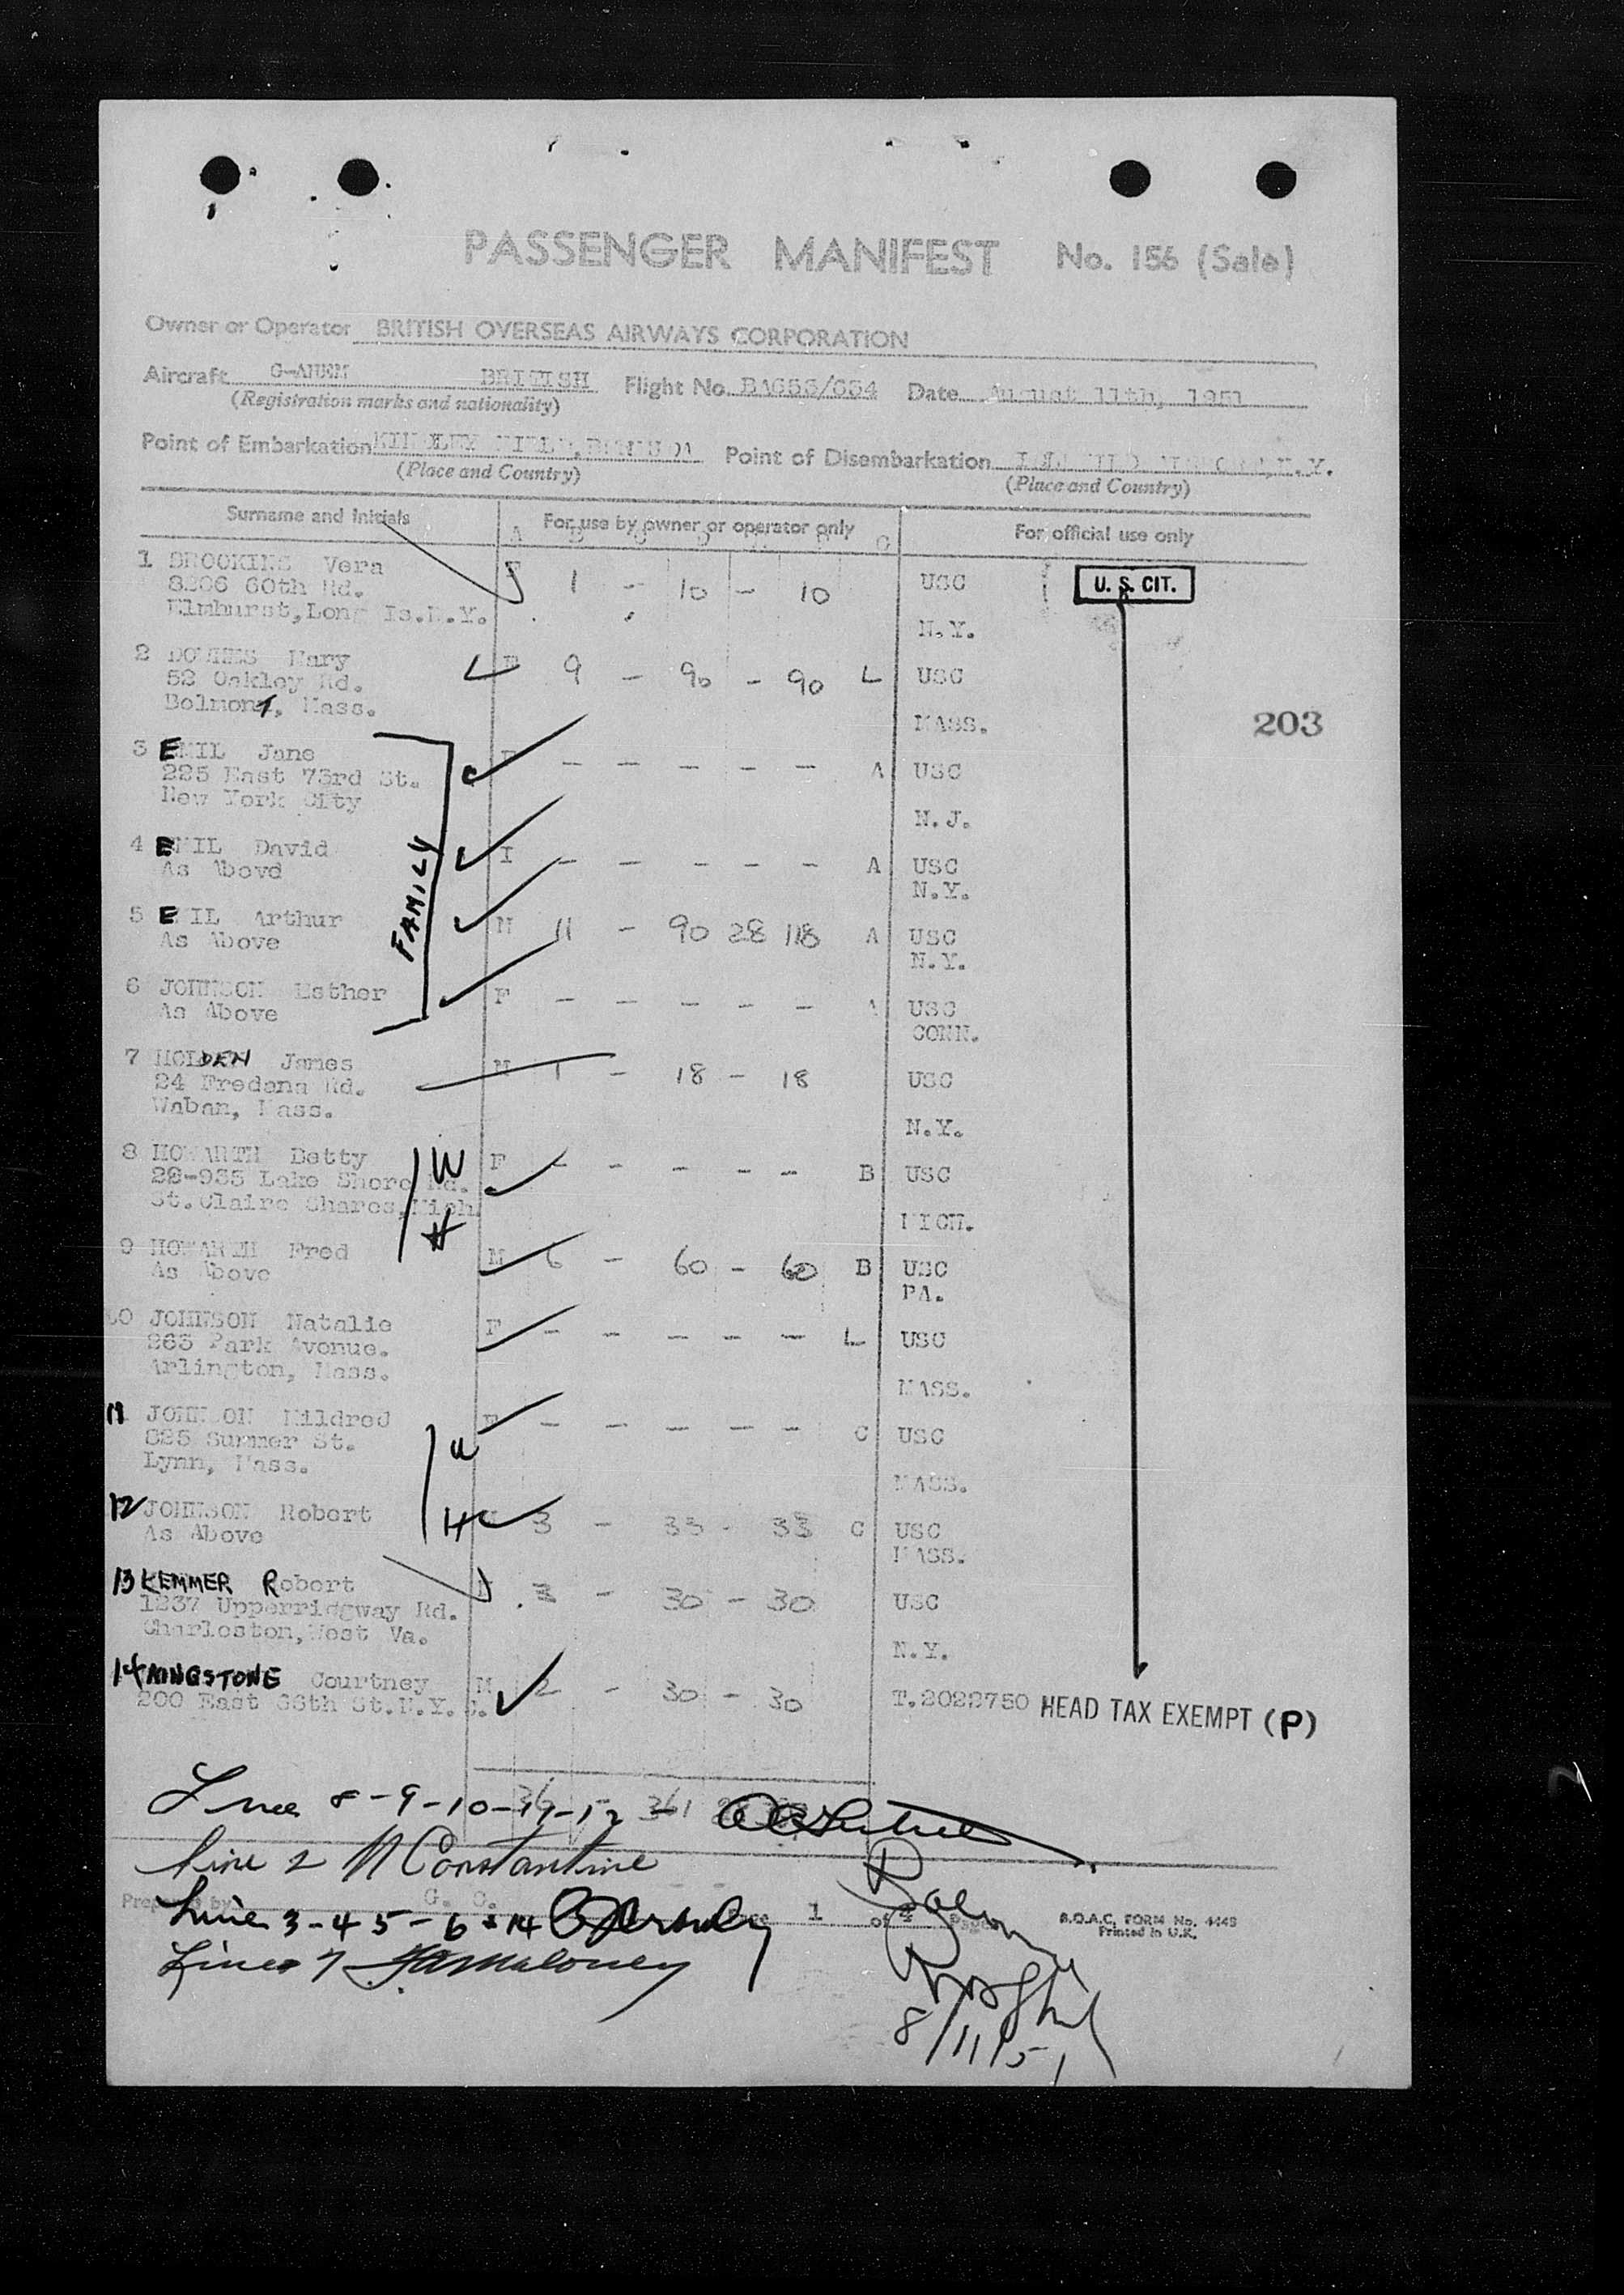 PASSENGER MANIFEST No. 156 (Sale)
Owner or Operator BRITISH OVERSEAS AIRWAYS CORPORATION
Aircraft BRITISH Flight No. Date August 11th, 1951
(Registration marks and nationality)
Point of Embarkation KINDLEY FIELD, BERMUDA Point of Disembarkation N.Y.
(Place and Country) (Place and Country)
Surname and Initials For use by owner or operator only For official use only
A B C D E F G
1 Vera F 1 - 10 - 10 USC U. S. CIT.
8206 60th Rd.
Elmhurst, Long Is. N.Y. N.Y.
2 DOWNES Mary F 9 - 90 - 90 L USC
52 Oakley Rd.
Belmont, Mass. MASS.
203
3 EMIL Jane F - - - - - A USC
225 East 73rd St.
New York City N.J.
FAMILY
4 EMIL David I - - - - - A USC
As Abovd N.Y.
5 EMIL Arthur M 11 - 90 28 118 A USC
As Above N.Y.
6 JOHNSON Esther F - - - - - A USC
As Above CONN.
7 HOLDEN James M 1 - 18 - 18 USC
24 Fredana Rd.
Waban, Mass. N.Y.
8 HOWARTH Betty W F - - - - - B USC
22-935 Lake Shore Rd.
St. Claire Shares, Mich. MICH.
9 HOWARTH Fred H M 6 - 60 - 60 B USC
As Above PA.
10 JOHNSON Natalie F - - - - - L USC
263 Park Avenue.
Arlington, Mass. MASS.
11 JOHNSON Mildred W F - - - - - C USC
825 Summer St.
Lynn, Mass. MASS.
12 JOHNSON Robert H 3 - 33 - 33 C USC
As Above MASS.
13 KEMMER Robert 3 - 30 - 30 USC
1237 Upperridgway Rd.
Charleston, West Va. N.Y.
14 KINGSTONE Courtney M 2 - 30 - 30 T.2022750 HEAD TAX EXEMPT (P)
200 East 66th St. N.Y.C.
36 - 361
Lines 8-9-10-11-12 -
Line 2 N Constantine
Prepared by G. C. Page 1 of 4 Pages B.O.A.C. FORM No. 4448
Line 3-4 5-6 + 14 Printed in U.K.
Lines 7 Maloney
8/11/51